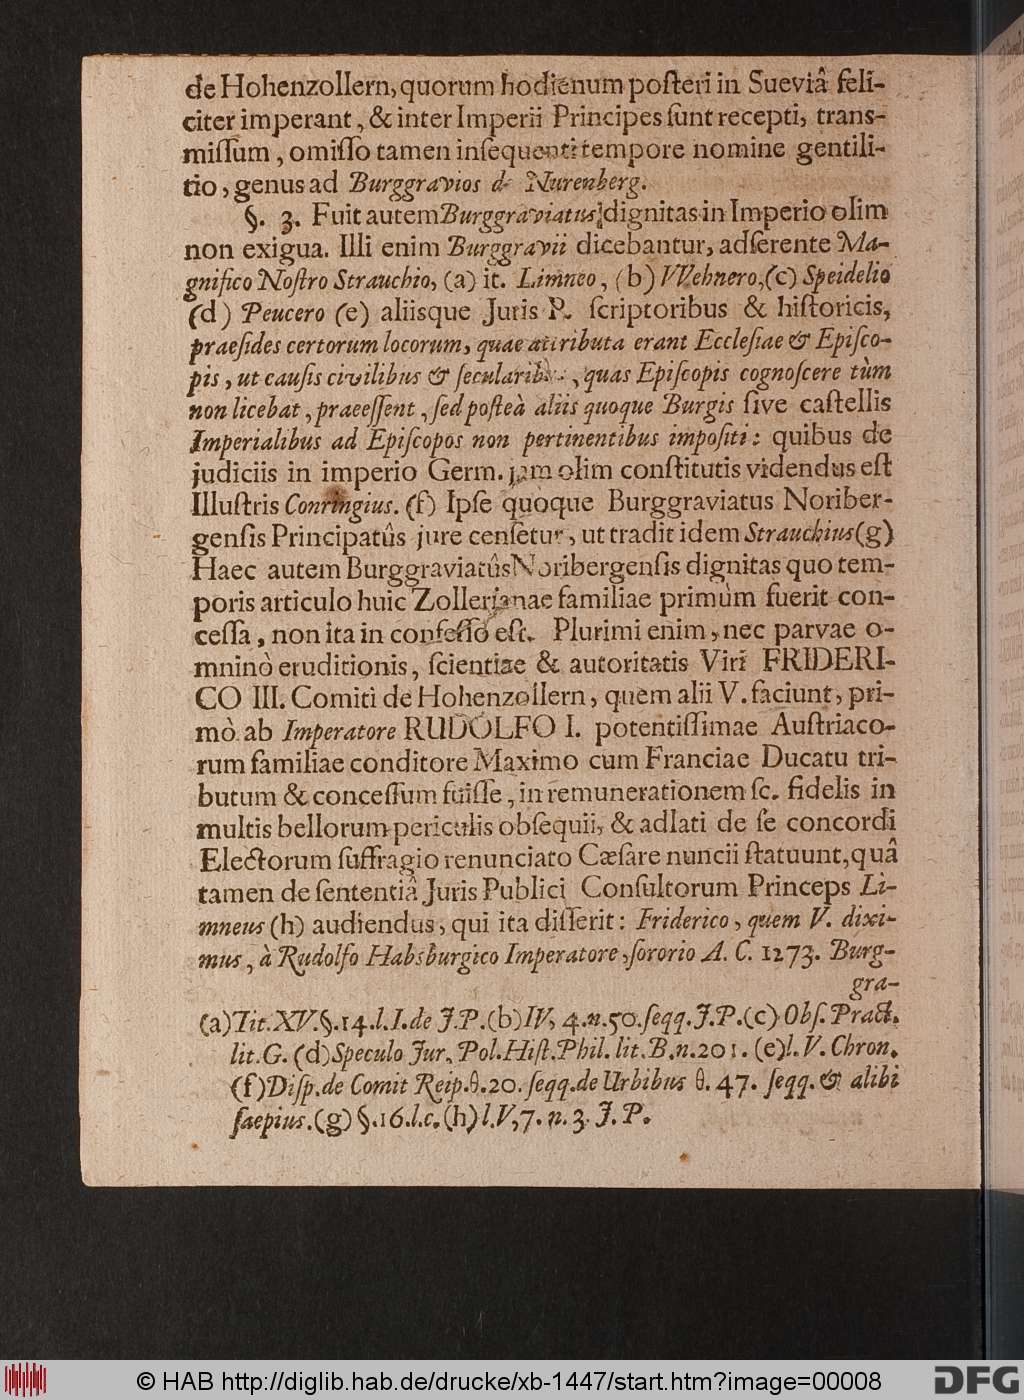 de Hohenzollern, quorum hodienum poſteri in Sueviâ feli-
citer imperant, & inter Imperii Principes ſunt recepti, trans-
miſſum, omiſſo tamen inſequenti tempore nomine gentili-
tio, genus ad Burggravios de Nurenberg.
§. 3. Fuit autem Burggraviatus dignitas in Imperio olim
non exigua. Illi enim Burggravii dicebantur, adſerente Ma-
gnifico Noſtro Strauchio, (a) it. Limneo, (b) VVehnero, (c) Speidelio
(d) Peucero (e) aliisque Juris P. ſcriptoribus & hiſtoricis,
praeſides certorum locorum, quae attributa erant Eccleſiae & Epiſco-
pis, ut cauſis civilibus & ſecularib⁹, quas Epiſcopis cognoſcere tùm
non licebat, praeeſſent, ſed poſteà aliis quoque Burgis ſive caſtellis
Imperialibus ad Epiſcopos non pertinentibus impoſiti: quibus de
judiciis in imperio Germ. jam olim conſtitutis videndus eſt
Illuſtris Conringius. (f) Ipſe quoque Burggraviatus Noriber-
genſis Principatûs jure cenſetur, ut tradit idem Strauchius (g)
Haec autem Burggraviatûs Noribergenſis dignitas quo tem-
poris articulo huic Zollerianae familiae primùm fuerit con-
ceſſa, non ita in confeſſo eſt. Plurimi enim, nec parvae o-
mninò eruditionis, ſcientiae & autoritatis Viri FRIDERI-
CO III. Comiti de Hohenzollern, quem alii V. faciunt, pri-
mò ab Imperatore RUDOLFO I. potentiſſimae Auſtriaco-
rum familiae conditore Maximo cum Franciae Ducatu tri-
butum & conceſſum fuiſſe, in remunerationem ſc. fidelis in
multis bellorum periculis obſequii, & adlati de ſe concordi
Electorum ſuffragio renunciato Cæſare nuncii ſtatuunt, quâ
tamen de ſententiâ Juris Publici Conſultorum Princeps Li-
mneus (h) audiendus, qui ita diſſerit: Friderico, quem V. dixi-
mus, à Rudolfo Habsburgico Imperatore, ſororio A. C. 1273. Burg-
gra-
(a) Tit. XV. §. 14. l. I. de J. P. (b) IV, 4. n. 50. ſeqq. J. P. (c) Obſ. Pract.
lit. G. (d) Speculo Jur. Pol. Hiſt. Phil. lit. B. n. 201. (e) l. V. Chron.
(f) Diſp. de Comit Reip. θ. 20. ſeqq. de Urbibus θ. 47. ſeqq. & alibi
ſaepius. (g) §. 16. l. c. (h) l. V, 7. n. 3. J. P.
© HAB http://diglib.hab.de/drucke/xb-1447/start.htm?image=00008
DFG